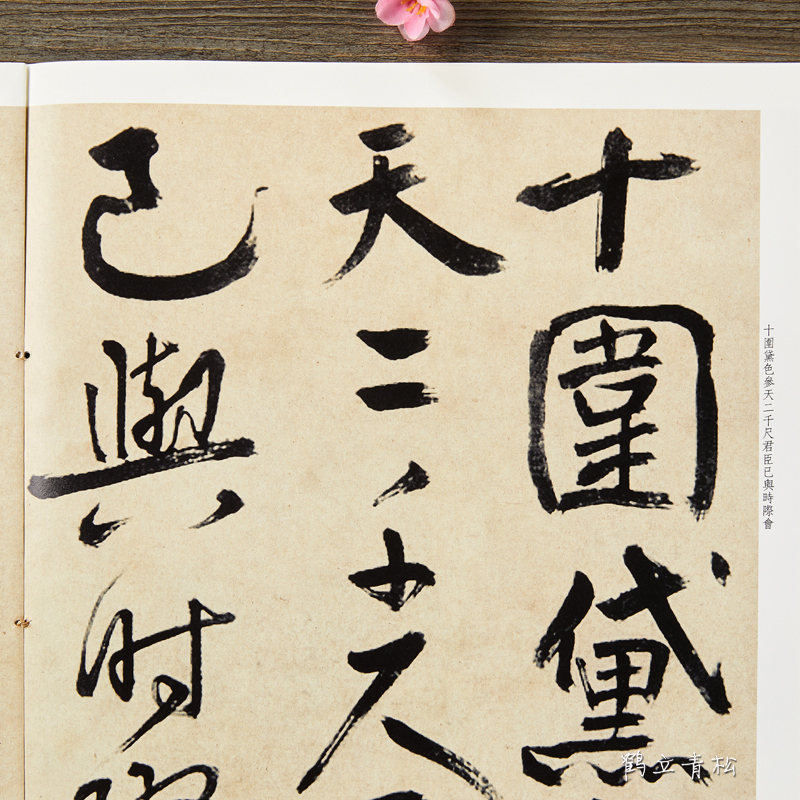 十圍黛
天二千尺
已與時
十圍黛色參天二千尺君臣已與時際會
鹤立青松